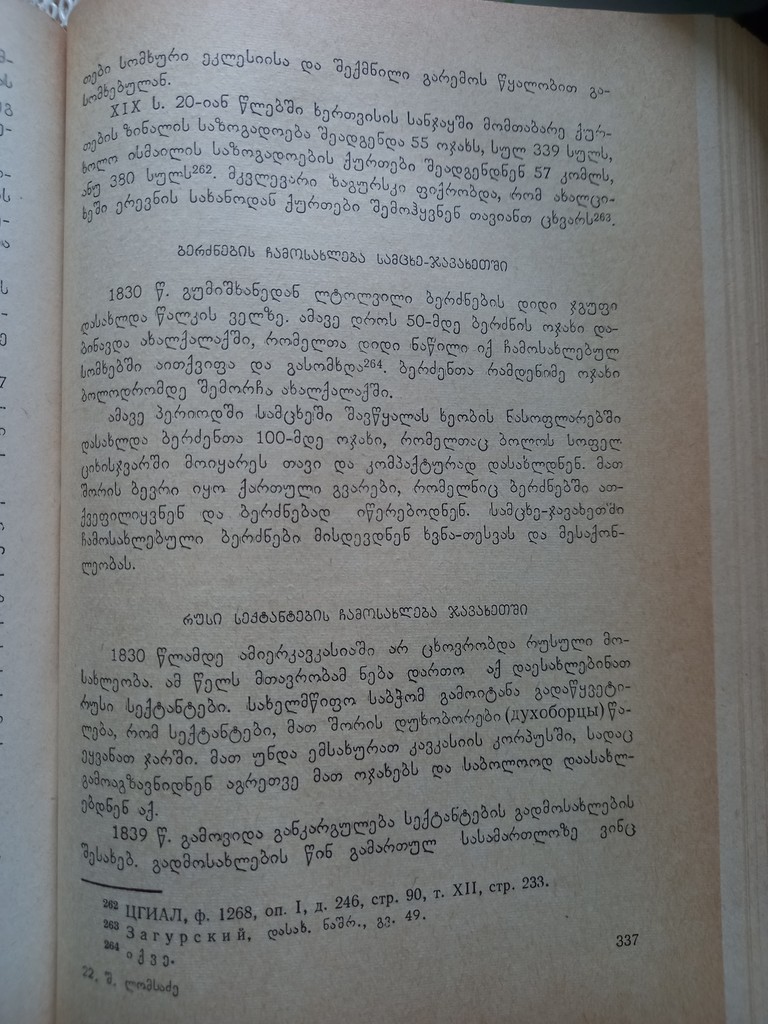 თები სომხური ეკლესიისა და შექმნილი გარემოს წყალობით გა-
სომხებულან.
XIX ს. 20-იან წლებში ხერთვისის სანჯაყში მომთაბარე ქურ-
თების ზინალის საზოგადოება შეადგენდა 55 ოჯახს, სულ 339 სულს,
ხოლო ისმაილის საზოგადოების ქურთები შეადგენდნენ 57 კომლს,
ანუ 380 სულს²⁶². მკვლევარი ზაგურსკი ფიქრობდა, რომ ახალცი-
ხეში ერევნის სახანოდან ქურთები შემოჰყვნენ თავიანთ ცხვარს²⁶³.
ბერძნების ჩამოსახლება სამცხე-ჯავახეთში
1830 წ. გუმიშხანედან ლტოლვილი ბერძნების დიდი ჯგუფი
დასახლდა წალკის ველზე. ამავე დროს 50-მდე ბერძნის ოჯახი და-
ბინავდა ახალქალაქში, რომელთა დიდი ნაწილი იქ ჩამოსახლებულ
სომხებში აითქვიფა და გასომხდა²⁶⁴. ბერძენთა რამდენიმე ოჯახი
ბოლოდრომდე შემორჩა ახალქალაქში.
ამავე პერიოდში სამცხეში შავწყალას ხეობის ნასოფლარებში
დასახლდა ბერძენთა 100-მდე ოჯახი, რომელთაც ბოლოს სოფელ
ციხისჯვარში მოიყარეს თავი და კომპაქტურად დასახლდნენ. მათ
შორის ბევრი იყო ქართული გვარები, რომელნიც ბერძნებში ათ-
ქვეფილიყვნენ და ბერძნებად იწერებოდნენ. სამცხე-ჯავახეთში
ჩამოსახლებული ბერძნები მისდევდნენ ხვნა-თესვას და მესაქონ-
ლეობას.
რუსი სექტანტების ჩამოსახლება ჯავახეთში
1830 წლამდე ამიერკავკასიაში არ ცხოვრობდა რუსული მო-
სახლეობა. ამ წელს მთავრობამ ნება დართო აქ დაესახლებინათ
რუსი სექტანტები. სახელმწიფო საბჭომ გამოიტანა გადაწყვეტი-
ლება, რომ სექტანტები, მათ შორის დუხობორები (духоборцы) წა-
ეყვანათ ჯარში. მათ უნდა ემსახურათ კავკასიის კორპუსში, სადაც
გამოაგზავნიდნენ აგრეთვე მათ ოჯახებს და საბოლოოდ დაასახლ-
ებდნენ აქ.
1839 წ. გამოვიდა განკარგულება სექტანტების გადმოსახლების
შესახებ. გადმოსახლების წინ გამართულ სასამართლოზე ვინც
²⁶² ЦГИАЛ, ф. 1268, оп. I, д. 246, стр. 90, т. XII, стр. 233.
²⁶³ Загурский, დასახ. ნაშრ., გვ. 49.
²⁶⁴ იქვე.
22. შ. ლომსაძე
337